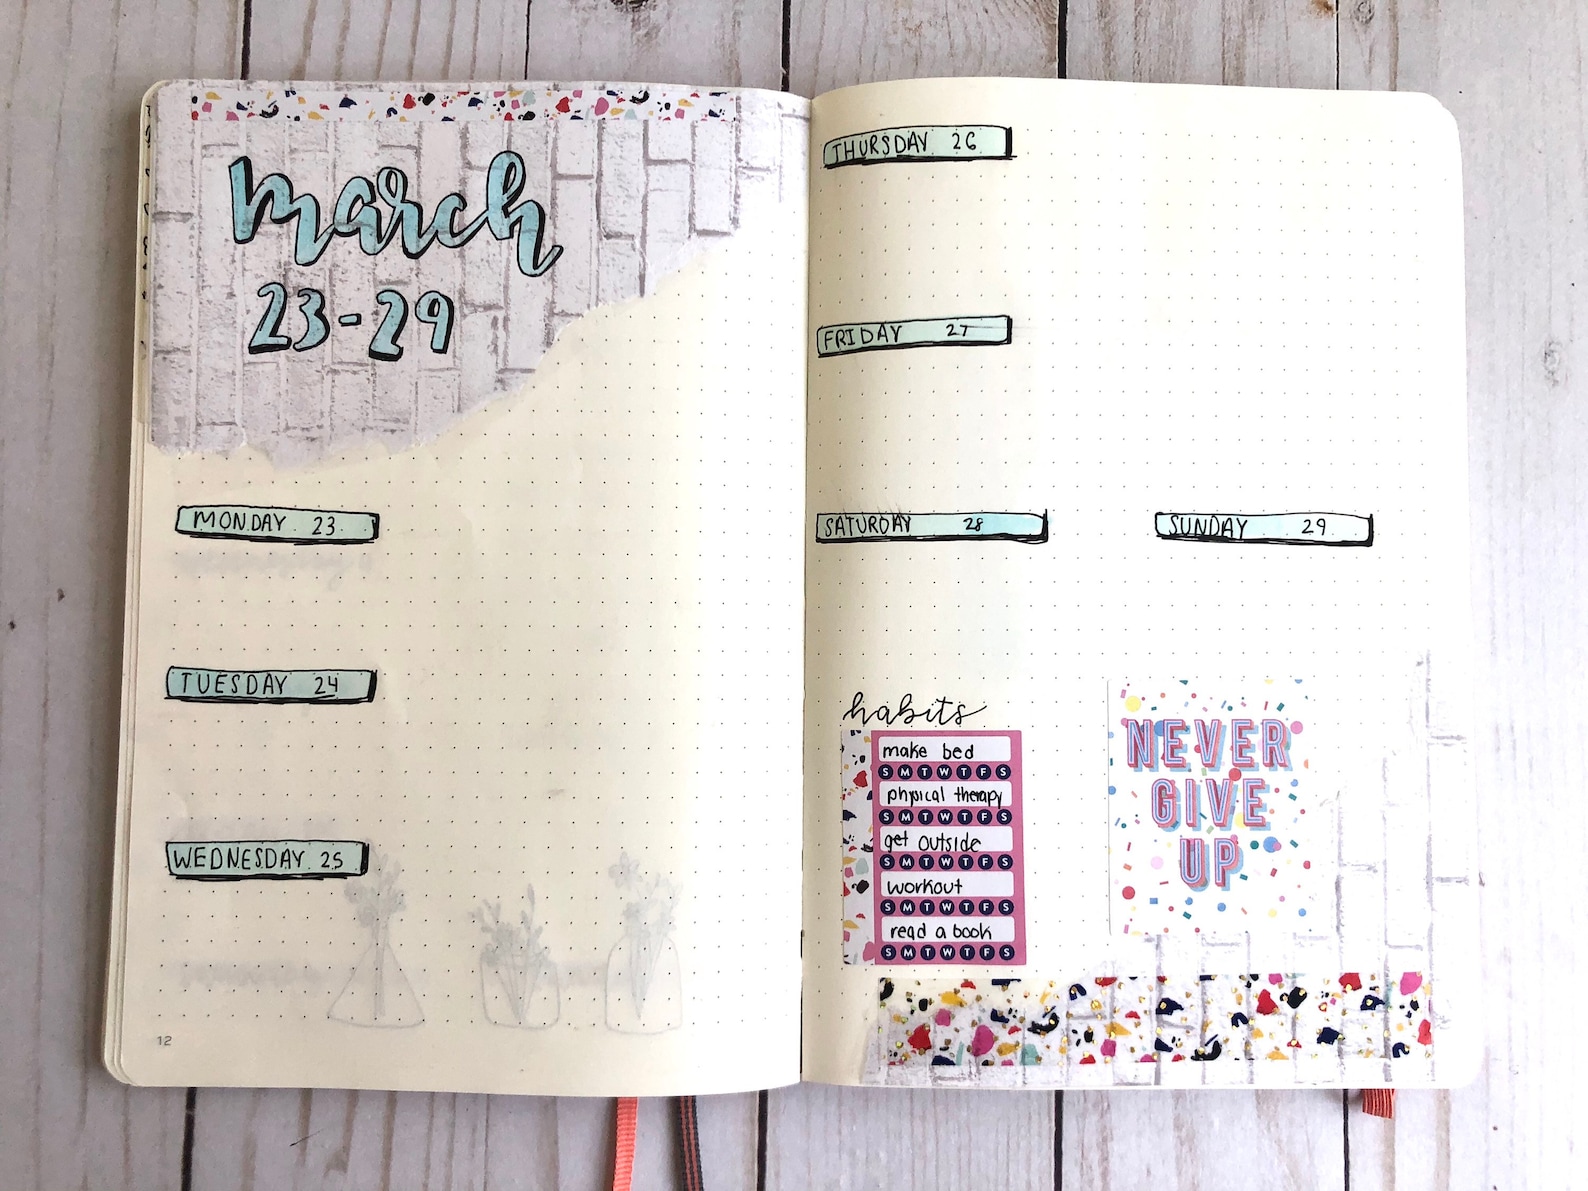 march
23-29
MONDAY 23
TUESDAY 24
WEDNESDAY 25
12
THURSDAY 26
FRIDAY 27
SATURDAY 28
SUNDAY 29
habits
make bed
S M T W T F S
physical therapy
S M T W T F S
get outside
S M T W T F S
workout
S M T W T F S
read a book
S M T W T F S
NEVER
GIVE
UP